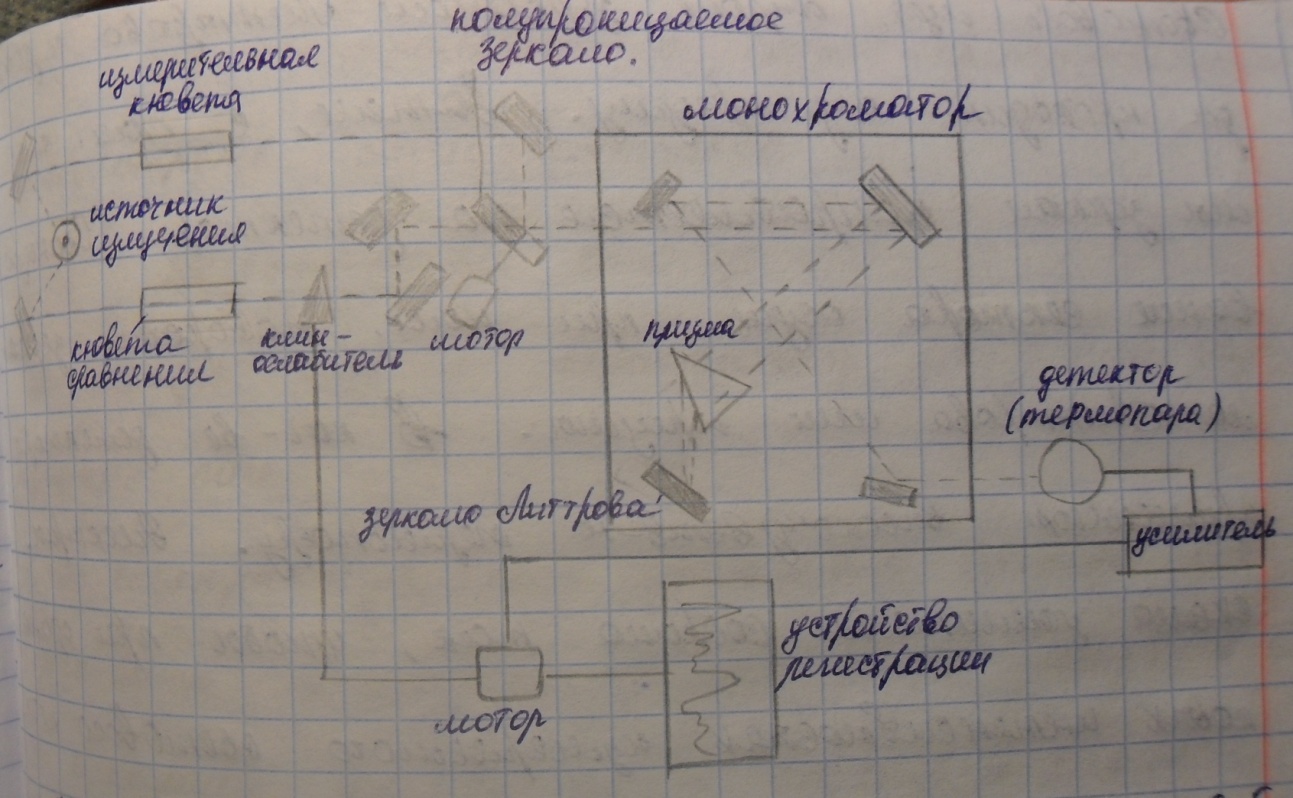 полупроницаемое
зеркало.
измерительная
кювета
монохроматор
источник
излучения
призма
кювета
сравнения
клин-
ослабитель
мотор
детектор
(термопара)
зеркало Литтрова
усилитель
устройство
регистрации
мотор